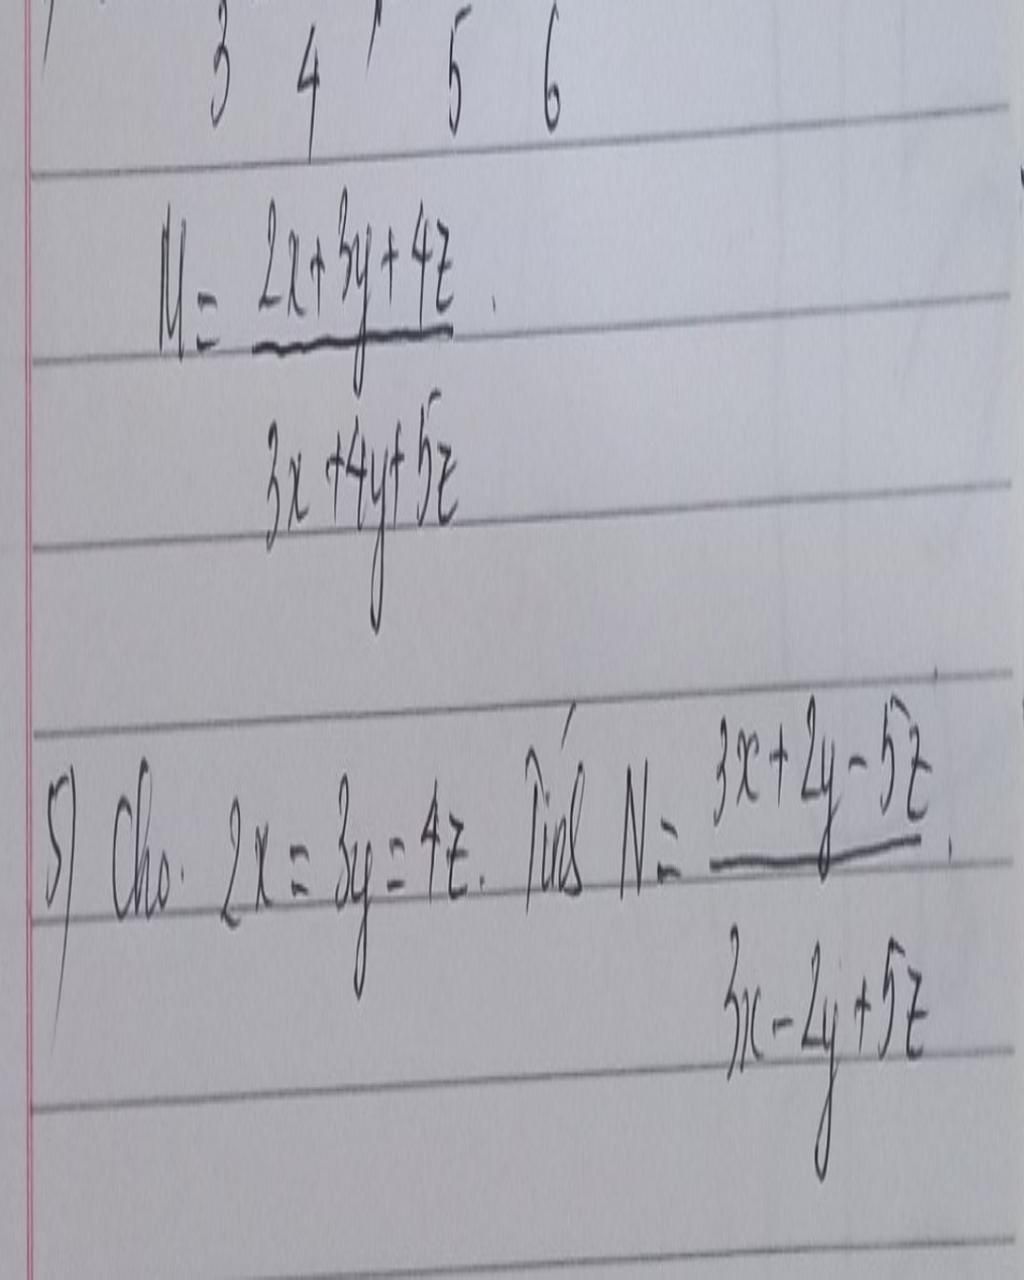 3 4 , 5 6
M = 2x+3y+4z .
3x+4y+5z
5) Cho. 2x = 3y = 4z. Tính N = 3x+2y-5z .
3x-2y+5z